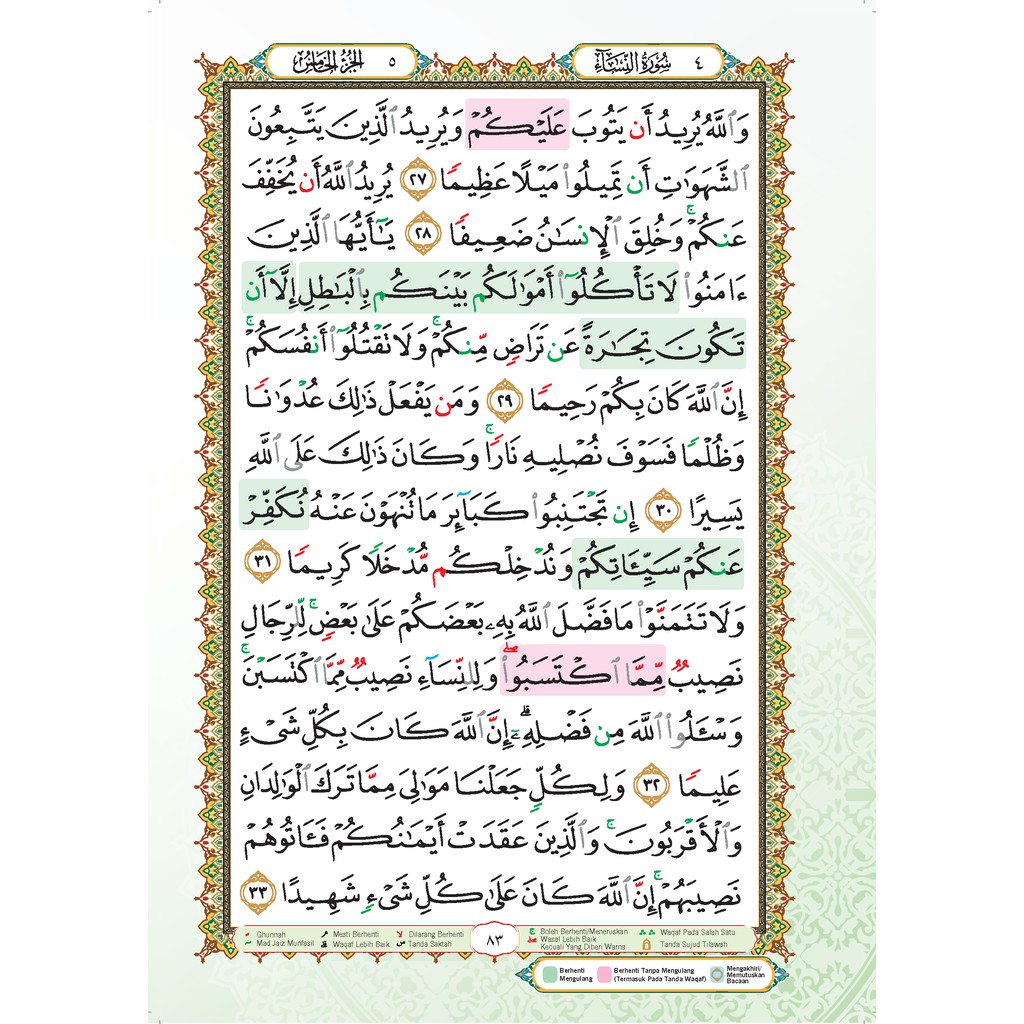 سُورَةُ النِّسَاءِ ٤
الجُزْءُ الخَامِسُ ٥
وَٱللَّهُ يُرِيدُ أَن يَتُوبَ عَلَيْكُمْ وَيُرِيدُ ٱلَّذِينَ يَتَّبِعُونَ
ٱلشَّهَوَٰتِ أَن تَمِيلُوا۟ مَيْلًا عَظِيمًا ٢٧ يُرِيدُ ٱللَّهُ أَن يُخَفِّفَ
عَنكُمْ ۚ وَخُلِقَ ٱلْإِنسَٰنُ ضَعِيفًا ٢٨ يَٰٓأَيُّهَا ٱلَّذِينَ
ءَامَنُوا۟ لَا تَأْكُلُوٓا۟ أَمْوَٰلَكُم بَيْنَكُم بِٱلْبَٰطِلِ إِلَّآ أَن
تَكُونَ تِجَٰرَةً عَن تَرَاضٍ مِّنكُمْ ۚ وَلَا تَقْتُلُوٓا۟ أَنفُسَكُمْ ۚ
إِنَّ ٱللَّهَ كَانَ بِكُمْ رَحِيمًا ٢٩ وَمَن يَفْعَلْ ذَٰلِكَ عُدْوَٰنًا
وَظُلْمًا فَسَوْفَ نُصْلِيهِ نَارًا ۚ وَكَانَ ذَٰلِكَ عَلَى ٱللَّهِ
يَسِيرًا ٣٠ إِن تَجْتَنِبُوا۟ كَبَآئِرَ مَا تُنْهَوْنَ عَنْهُ نُكَفِّرْ
عَنكُمْ سَيِّـَٔاتِكُمْ وَنُدْخِلْكُم مُّدْخَلًا كَرِيمًا ٣١
وَلَا تَتَمَنَّوْا۟ مَا فَضَّلَ ٱللَّهُ بِهِۦ بَعْضَكُمْ عَلَىٰ بَعْضٍ ۚ لِّلرِّجَالِ
نَصِيبٌ مِّمَّا ٱكْتَسَبُوا۟ ۖ وَلِلنِّسَآءِ نَصِيبٌ مِّمَّا ٱكْتَسَبْنَ ۚ
وَسْـَٔلُوا۟ ٱللَّهَ مِن فَضْلِهِۦٓ ۗ إِنَّ ٱللَّهَ كَانَ بِكُلِّ شَىْءٍ
عَلِيمًا ٣٢ وَلِكُلٍّ جَعَلْنَا مَوَٰلِىَ مِمَّا تَرَكَ ٱلْوَٰلِدَانِ
وَٱلْأَقْرَبُونَ ۚ وَٱلَّذِينَ عَقَدَتْ أَيْمَٰنُكُمْ فَـَٔاتُوهُمْ
نَصِيبَهُمْ ۚ إِنَّ ٱللَّهَ كَانَ عَلَىٰ كُلِّ شَىْءٍ شَهِيدًا ٣٣
Ghunnah
Mad Jaiz Munfasil
Mesti Berhenti
Waqaf Lebih Baik
Dilarang Berhenti
Tanda Saktah
٨٣
Boleh Berhenti/Meneruskan
Wasal Lebih Baik
Kecuali Yang Diberi Warna
Waqaf Pada Salah Satu
Tanda Sujud Tilawah
Berhenti
Mengulang
Berhenti Tanpa Mengulang
(Termasuk Pada Tanda Waqaf)
Mengakhiri/
Memutuskan
Bacaan